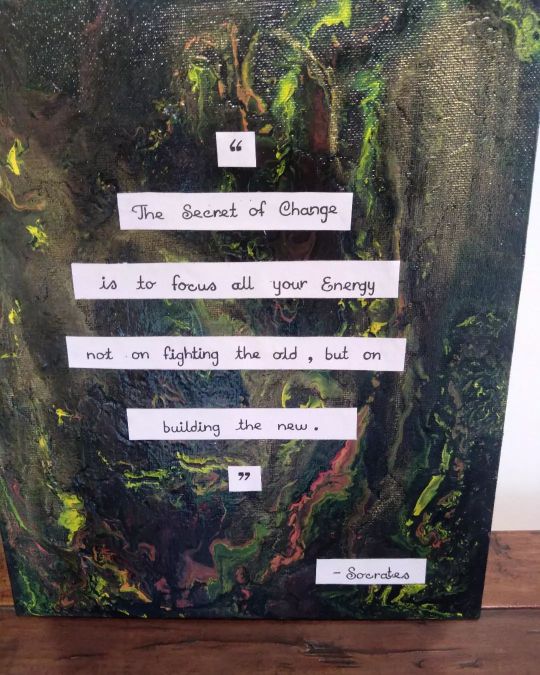 “
The Secret of Change
is to focus all your Energy
not on fighting the old, but on
building the new.
”
- Socrates